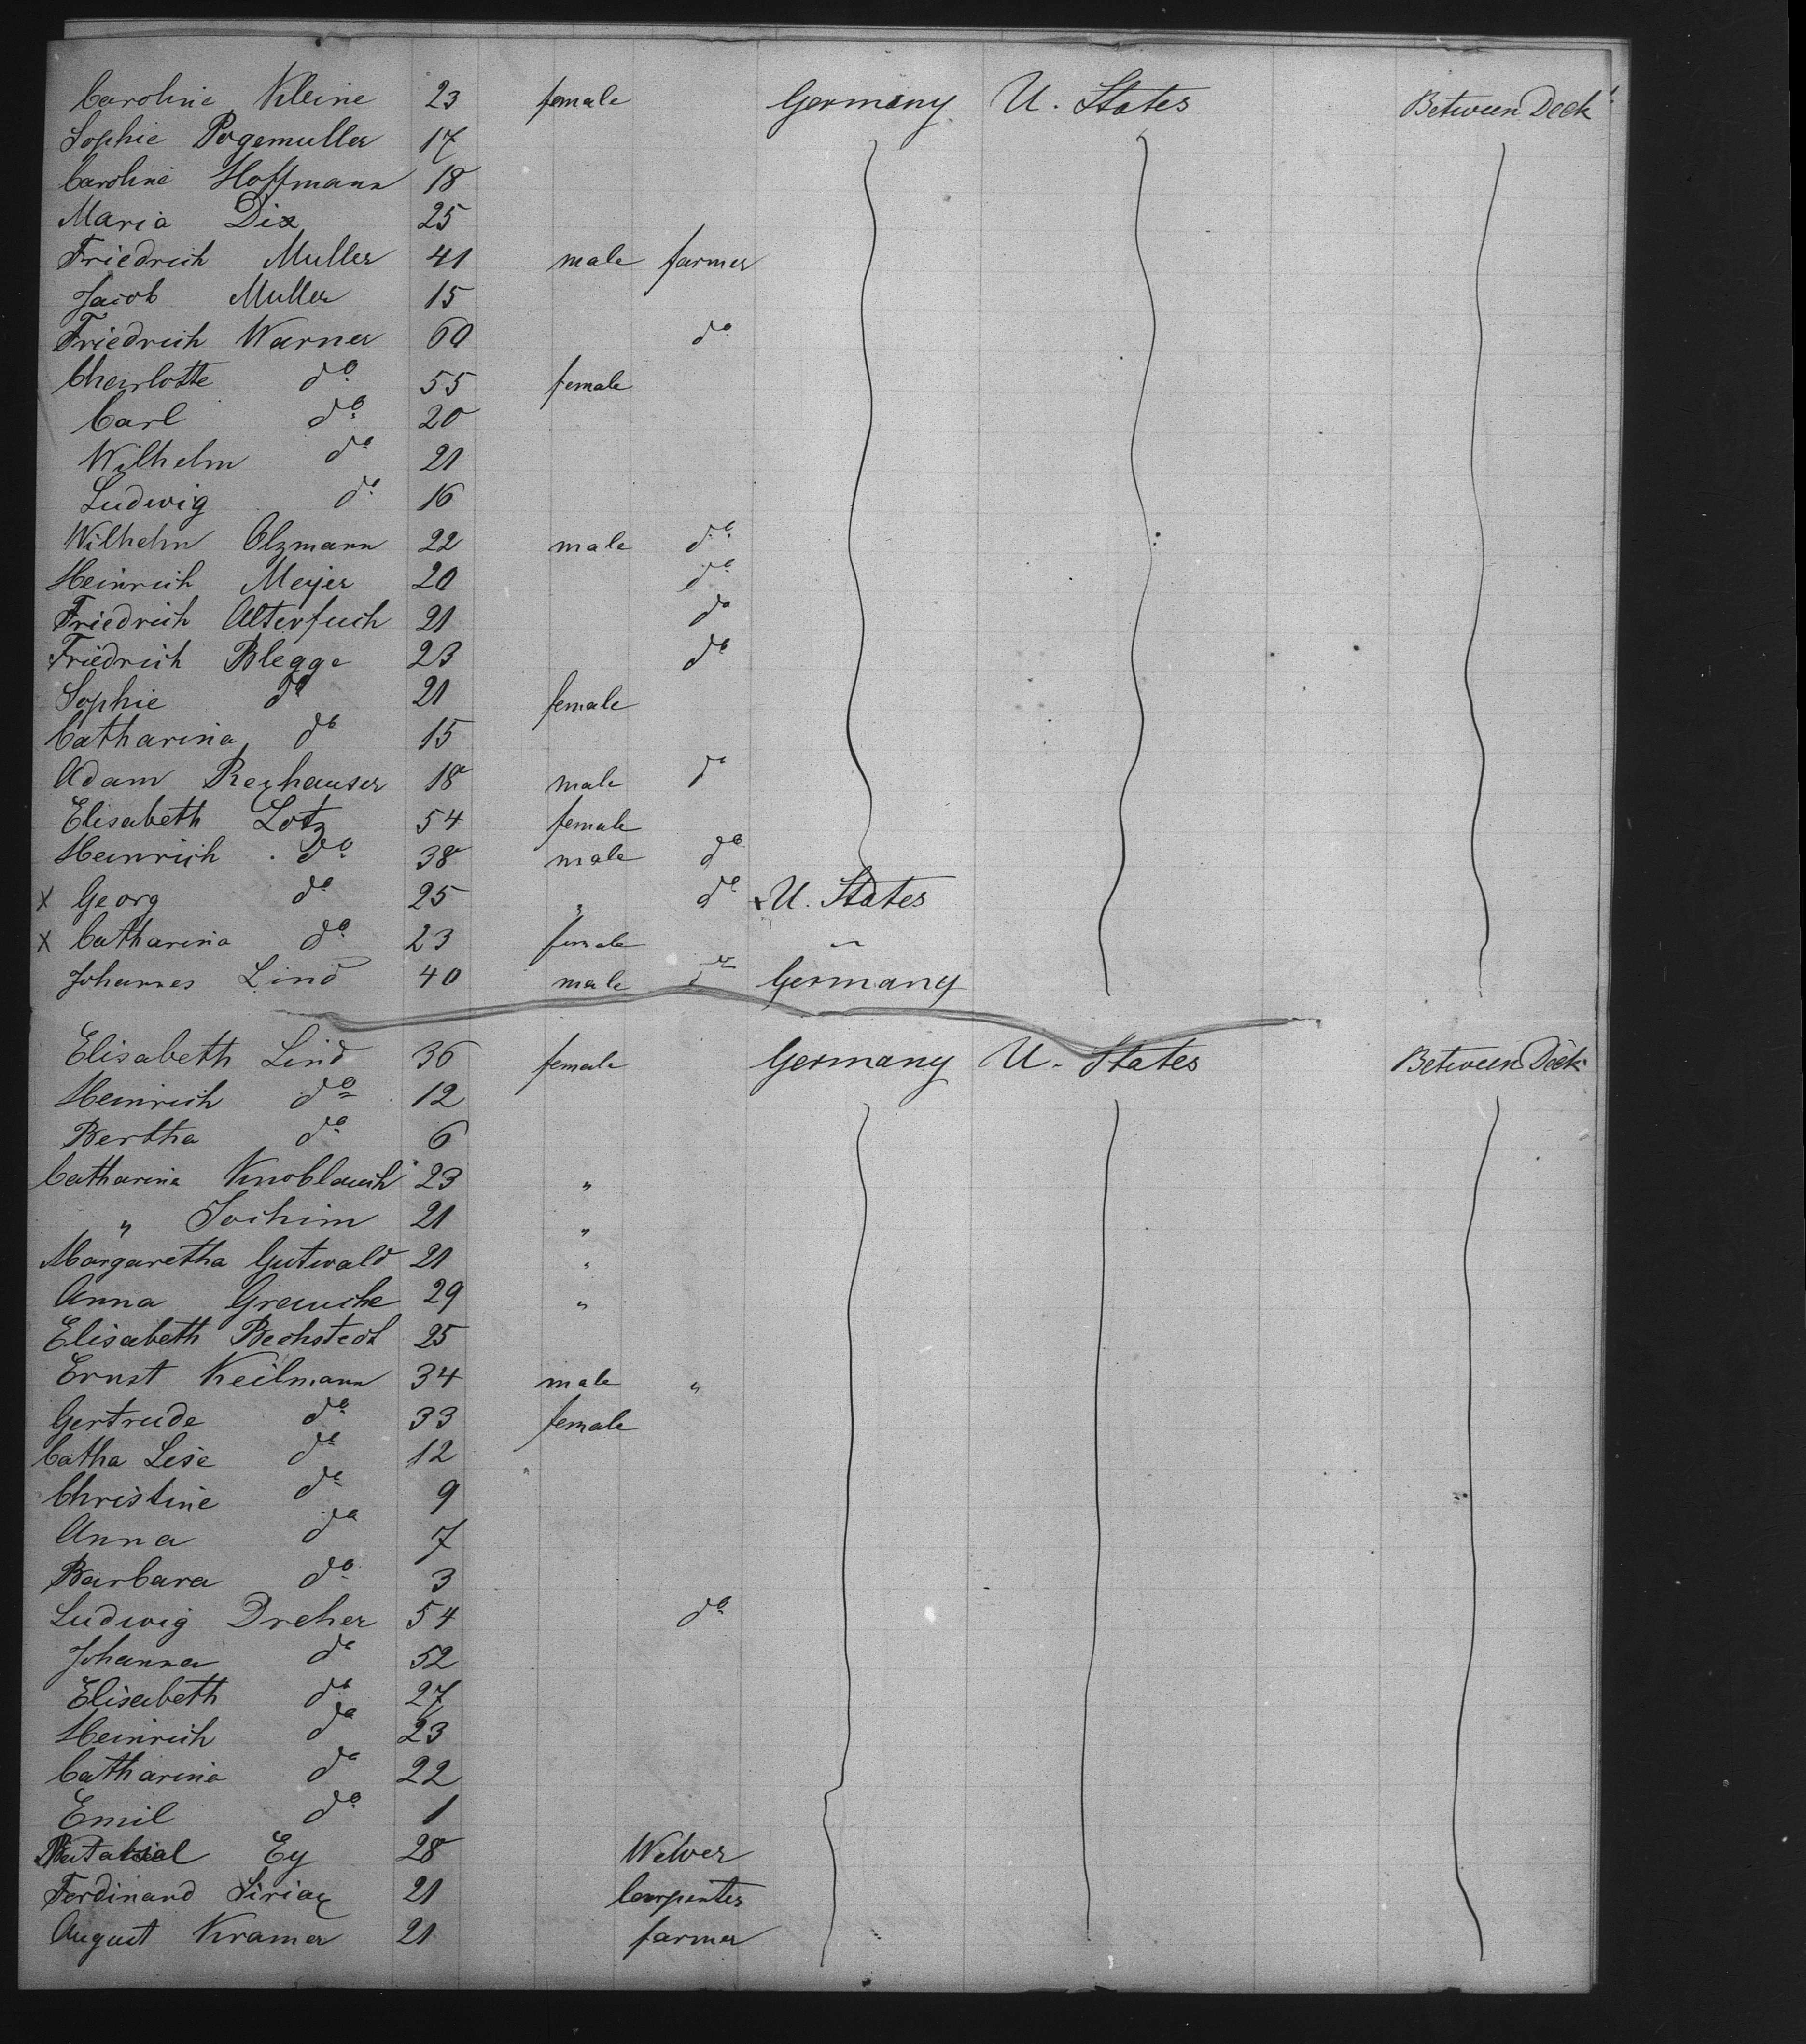 Caroline Kleine 23 female Germany U. States Between Deck
Sophie Pogemuller 17
Caroline Hoffmann 18
Maria Dix 25
Friedrich Muller 41 male farmer
Jacob Muller 15
Friedrich Warner 60 do
Charlotte do 55 female
Carl do 20
Wilhelm do 21
Ludwig do 16
Wilhelm Olzmann 22 male do
Heinrich Meyer 20 do
Friedrich 21 do
Friedrich Blegge 23 do
Sophie do 21 female
Catharina do 15
Adam Rexhauser 18 male do
Elisabeth Lotz 54 female
Heinrich do 38 male do
X Georg do 25 " do x U. States
X Catharina do 23 female "
Johannes Lind 40 male do Germany
Elisabeth Lind 36 female Germany U. States Between Deck
Heinrich do 12
Bertha do 6
Catharina Knoblauch 23 "
" Jochim 21 "
Margaretha Gutwald 21 "
Anna Grausche 29 "
Elisabeth Bechstedt 25
Ernst Keilmann 34 male "
Gertrude do 33 female
Catha Lise do 12
Christine do 9
Anna do 7
Barbara do 3
Ludwig Dreher 54 do
Johanna do 52
Elisabeth do 27
Heinrich do 23
Catharina do 22
Emil do 1
Ey 28 Welver
Ferdinand Siriax 21 Carpenter
August Kramer 21 farmer